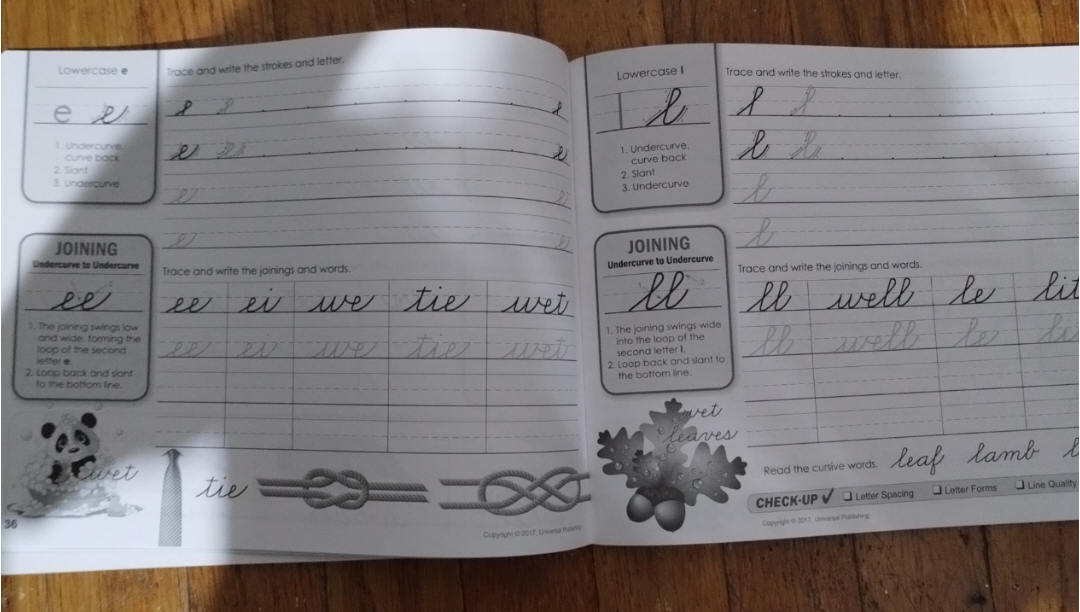 Lowercase e
e e
1. Undercurve,
curve back
2. Slant
3. Undercurve
Trace and write the strokes and letter.
e e
e e
e e
JOINING
Undercurve to Undercurve
ee
1. The joining swings low
and wide, forming the
loop of the second
letter e.
2. Loop back and slant
to the bottom line.
Trace and write the joinings and words.
ee ei we tie wet
ee ei we tie wet
wet
tie
36
Copyright © 2017, Universal Publishing
Lowercase l
l l
1. Undercurve,
curve back
2. Slant
3. Undercurve
Trace and write the strokes and letter.
l l
l
l
JOINING
Undercurve to Undercurve
ll
1. The joining swings wide
into the loop of the
second letter l.
2. Loop back and slant to
the bottom line.
Trace and write the joinings and words.
ll well le lit
ll well le li
wet
leaves
Read the cursive words. leaf lamb l
CHECK-UP ✓ ❑ Letter Spacing ❑ Letter Forms ❑ Line Quality
Copyright © 2017, Universal Publishing